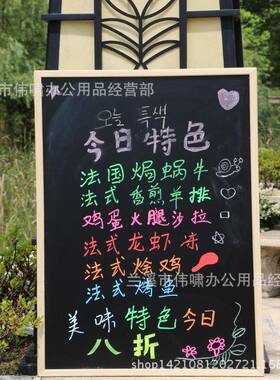 市伟啸办公用品经营部
오늘 특색
今日特色
法国焗蜗牛
法式香煎羊排
鸡蛋火腿沙拉
法式龙虾冻
兰溪市伟啸办公用品经
法式烩鸡
法式烤鱼
美味特色今日
八折
shop1421081302721168